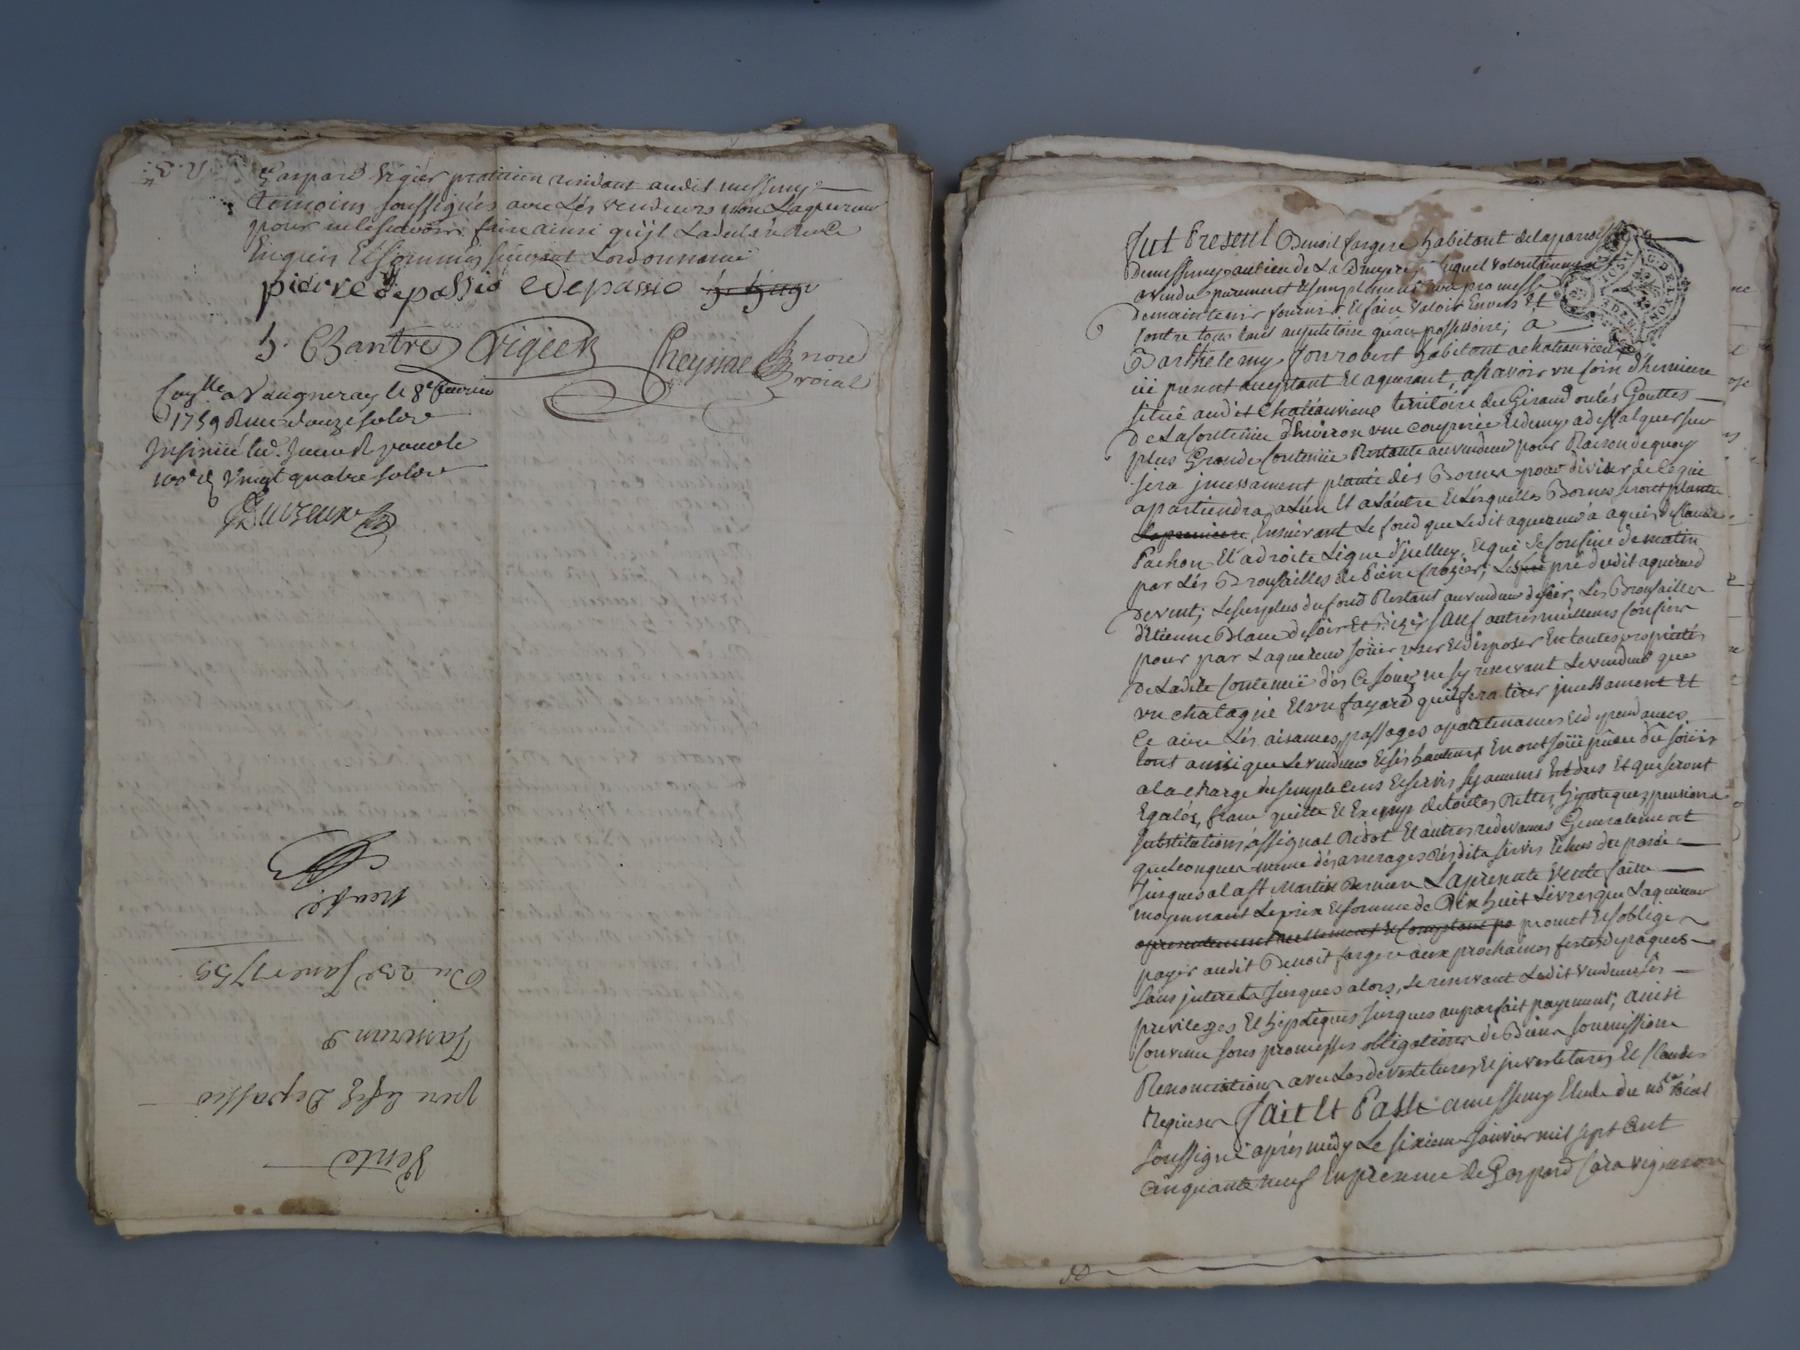 Gaspard Vigier praticien residant audit messimy
temoins soussignés avec Les vendeurs non Laquereur
pour ne le scavoir faire ainsi qu'jl La declaré De Ce
Enquis Et sommés suivant Lordonnance
pierre depassio edepassio
h. Chantre Vigier Cheyssac nore roial
Conlle a Vaugneray le 8e fevrier
1759 Reçu douze sols
Insinué led. Jour R pour le
100e d. Vingt quatre sols
Du 23e Janvier 1759
Vente
Fut Present Benoit fargere habitant de la paroisse
de messimy au lieu de La Bruyere Lequel volontairement
a vendu purement Et simplement avec promesse
de maintenir fournir Et faire valoir Envers Et
Contre tous tant au petitoire qu'au possessoire; a
Barthelemy Jonrobert habitant a chateauvieux
ici present acceptant Et aquerant, ascavoir un Coin d'hermiere
situé audit Chateauvieux territoire du Giraud ou les Gouttes
De La Contenue d'Environ une Couperée Et demy a desfalquer sur
plus Grande Contenue Restante au vendeur pour Raison de quoy
sera jncessament planté des Bornes pour diviser de Ce qui
apartiendra a L'un Et a L'autre Et Lesquelles Bornes seront plantée
Ensuivant Le fond que Ledit aquereur a aquis de Claude
Pachon Et a droite Ligne d'jcelluy, Et qui Se Confine de matin
par Les Brousailles de Pierre Crozier; Les pré dudit aquereur
De vent; Le surplus du fond Restant au vendeur de soir, Les Brousailles
d'Etienne Blanc de soir Et sauf autres meilleurs Confins
pour par Laquereur Joüir user Et disposer En toutes proprietés
De Ladite Contenuë dés Ce Jour, ne sy reservant Le vendeur que
un chatagné Et un fayard qu'jl fera tirer jncessament Et
Ce avec Les aisances, passages apartenances Et dependances
tout ainsi que Le vendeur Et ses hauteurs En ont Joüi pû ou dû Joüir
a La Charge du simple Cens Et servis sy aucuns Est dus Et que seront
Egalés, franc quitte Et Exempt de toutes Rettes, hipoteques, pensions
substitutions, assignat Rédot Et autres redevances Generalement
quelconques même des arrerages desdits servis Echus du passé
Jusques a La St Martin Derniere La presente vente faite
moyennant Le prix Et somme de Dix huit Livres que Laquereur
promet Et s'oblige
payer audit Benoit fargere aux prochaines festes de paques
Sans jnterets Jusques alors, se reservant Ledit Vendeur ses
privileges Et hipoteques Jusques au parfait payement; ainsi
Convenu sous promesses obligations de Biens soumissions
Renonciations avec Les devestitures Et jnvestitures Et Clauses
Requises Fait Et Passé a messimy Etude du nore Roial
soussigné après midy Le sixieme Janvier mil sept Cent
Cinquante neuf En presence de Gaspard Cara vigneron